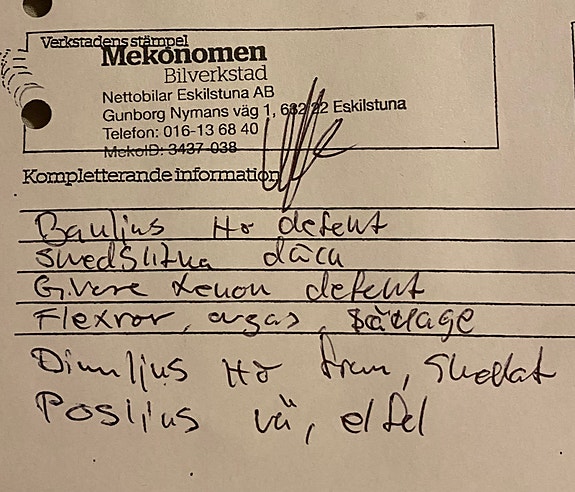 Verkstadens stämpel
Mekonomen
Bilverkstad
Nettobilar Eskilstuna AB
Gunborg Nymans väg 1, 632 22 Eskilstuna
Telefon: 016-13 68 40
MekoID: 3437-038
Kompletterande information
Bakljus Hö defekt
Snedslitna däck
Givare Xenon defekt
Flexrör, avgas, läckage
Dimljus Hö fram, skadat
Posljus vä, elfel